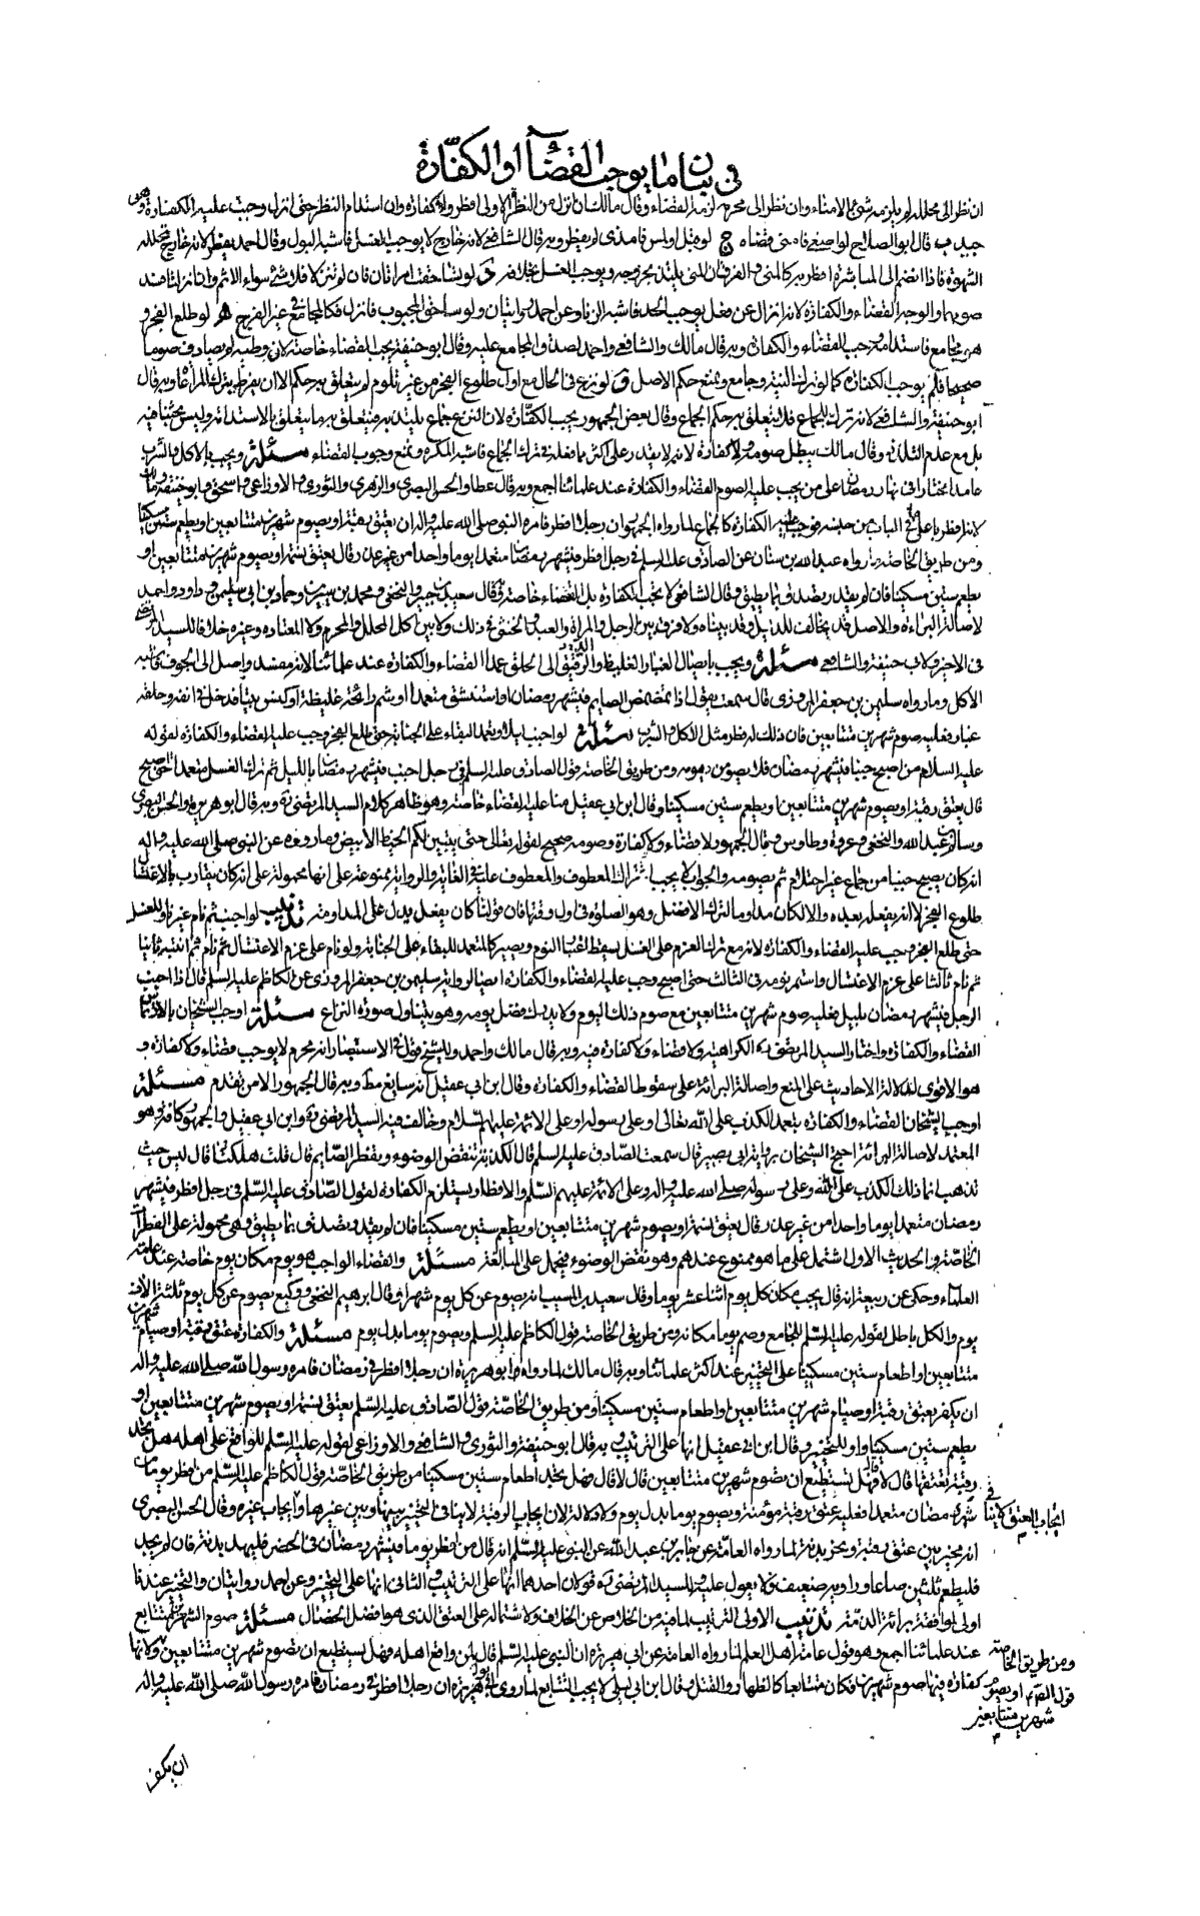 في بيان ما يوجب القضاء او الكفارة
ان نظر الى محللة لم يلزمه شيء بالامناء وان نظر الى محرمة لزمه القضاء وقال مالك ان انزل من النظر الاولى افطر ولا كفارة وان استدام النظر حتى انزل وجبت عليه الكفارة
قال ابو الصلاح لو اصغى فامنى قضاه ج لو قبل او لمس فامذى لم يفطر وبه قال الشافعي لانه خارج لا يوجب الغسل فاشبه البول وقال احمد يفطر لانه خارج تخلله
الشهوة فاذا انضم الى المباشرة افطر به كالمني والفرق ان المني يلتذ بخروجه ويوجب الغسل بخلافه لو تساحقت امراتان فان لم تنزلا فلا شيء سواء الاثم وان انزلتا فسد
صومهما والوجه القضاء والكفارة لانه انزال عن فعل يوجب الحد فاشبه الزنا وعن احمد روايتان ولو ساحق المجبوب فانزل فكالمجامع في غير الفرج لو طلع الفجر و
هو مجامع فاستدامه وجب القضاء والكفارة وبه قال مالك والشافعي واحمد لصدق المجامع عليه وقال ابو حنيفة يجب القضاء خاصة لان وطيه لم يصادف صوما
صحيحا فلم يوجب الكفارة كما لو ترك النية وجامع ويمنع حكم الاصل لو نزع في الحال مع اول طلوع الفجر من غير تلوم لم يتعلق به حكم الا ان يفرط بترك المراعاة وبه قال
ابو حنيفة والشافعي لانه ترك للجماع فلا يتعلق به حكم الجماع وقال بعض الجمهور يجب الكفارة لان النزع جماع يلتذ به فيتعلق به ما يتعلق بالاستدامة وليس بحثنا فيه
بل مع عدم التلذذ وقال مالك يبطل صومه ولا كفارة لانه لا يقدر على اكثر مما فعله في ترك الجماع فاشبه المكره ونمنع وجوب القضاء مسئلة ويجب بالاكل والشرب
عامدا مختارا في نهار رمضان على من يجب عليه الصوم القضاء والكفارة عند علمائنا اجمع وبه قال عطا والحسن البصري والزهري والثوري والاوزاعي واسحق وابو حنيفة ومالك
لانه افطر باعلى ما في الباب من جنسه فوجب عليه الكفارة كالجماع لما رواه الجمهور ان رجلا افطر فامره النبي صلى الله عليه واله ان يعتق رقبة او يصوم شهرين متتابعين او يطعم ستين مسكينا
ومن طريق الخاصة ما رواه عبد الله بن سنان عن الصادق عليه السلم في رجل افطر في شهر رمضان متعمدا يوما واحدا من غير عذر قال يعتق نسمة او يصوم شهرين متتابعين او
يطعم ستين مسكينا فان لم يقدر تصدق بما يطيق وقال الشافعي لا تجب الكفارة بل القضاء خاصة وبه قال سعيد بن جبير والنخعي ومحمد بن سيرين وحماد بن ابي سليمن وداود واحمد
لاصالة البراءة والاصل قد يخالف للدليل وقد بيناه ولا فرق بين الرجل والمراة والعبد والخنثى في ذلك ولا بين اكل المحلل والمحرم ولا المعتاد وغيره خلافا للسيد المرتضى
في الاخير ولابي حنيفة والشافعي مسئلة ويجب بايصال الغبار الغليظ والرقيق الى الحلق عمدا القضاء والكفارة عند علمائنا لانه مفسد واصل الى الجوف فاشبه
الاكل وما رواه سليمن بن جعفر المروزي قال سمعته يقول اذا تمضمض الصايم في شهر رمضان او استنشق متعمدا او شم رائحة غليظة او كنس بيتا فدخل في انفه وحلقه
غبار فعليه صوم شهرين متتابعين فان ذلك له فطر مثل الاكل والشرب مسئلة لو اجنب ليلا وتعمد البقاء على الجنابة حتى طلع الفجر وجب عليه القضاء والكفارة لقوله
عليه السلام من اصبح جنبا في شهر رمضان فلا يصومن يومه ومن طريق الخاصة قول الصادق عليه السلم في رجل اجنب في شهر رمضان بالليل ثم ترك الغسل متعمدا حتى اصبح
قال يعتق رقبة او يصوم شهرين متتابعين او يطعم ستين مسكينا وقال ابن ابي عقيل منا عليه القضاء خاصة وهو ظاهر كلام السيد المرتضى ره وبه قال ابو هريرة والحسن البصري
وسالم بن عبد الله والنخعي وعروة وطاوس وقال الجمهور لا قضاء ولا كفارة وصومه صحيح لقوله تعالى حتى يتبين لكم الخيط الابيض وما رووه عن النبي صلى الله عليه واله
انه كان يصبح جنبا من جماع غير احتلام ثم يصومه والجواب لا يجب اشتراك المعطوف والمعطوف عليه في الغاية والرواية ممنوعة على انها محمولة على انه كان يقارب بالاغتسال
طلوع الفجر لا انه يفعله بعده والا لكان مداوما لترك الافضل وهو الصلوة في اول وقتها فان قولنا كان يفعل يدل على المداومة تذنيب لو اجنب ثم نام غير ناو للغسل
حتى طلع الفجر وجب عليه القضاء والكفارة لانه مع ترك العزم على الغسل يسقط اعتبار النوم ويصير كالمتعمد للبقاء على الجنابة ولو نام على عزم الاغتسال ثم نام ثم انتبه ثانيا
ثم نام ثالثا على عزم الاغتسال واستمر نومه في الثالث حتى اصبح وجب عليه القضاء والكفارة ايضا لرواية سليمن بن جعفر المروزي عن الكاظم عليه السلم قال اذا اجنب
الرجل في شهر رمضان بليل فعليه صوم شهرين متتابعين مع صوم ذلك اليوم ولا يدرك فضل يومه وهو يتناول صورة النزاع مسئلة اوجب الشيخان بالارتماس
القضاء والكفارة واختار السيد المرتضى ره الكراهية ولا قضاء ولا كفارة فيه وبه قال مالك واحمد وللشيخ قول في الاستبصار انه محرم لا يوجب قضاء ولا كفارة و
هو الاقوى لدلالة الاحاديث على المنع واصالة البرائة على سقوط القضاء والكفارة وقال ابن ابي عقيل انه سايغ مط وبه قال الجمهور الا من تقدم مسئلة
اوجب الشيخان القضاء والكفارة بتعمد الكذب على الله تعالى وعلى رسوله او على الائمة عليهم السلام وخالف فيه السيد المرتضى ره وابن ابي عقيل والجمهور كافة وهو
المعتمد لاصالة البرائة احتج الشيخان برواية ابي بصير قال سمعت الصادق عليه السلم قال الكذبة تنقض الوضوء ويفطر الصايم قال قلت هلكنا قال ليس حيث
تذهب انما ذلك الكذب على الله وعلى رسوله صلى الله عليه واله وعلى الائمة عليهم السلم والافطار يستلزم الكفارة لقول الصادق عليه السلم في رجل افطر في شهر
رمضان متعمدا يوما واحدا من غير عذر قال يعتق نسمة او يصوم شهرين متتابعين او يطعم ستين مسكينا فان لم يقدر تصدق بما يطيق وهي محمولة على الفطر
الخاصة والحديث الاول اشتمل على ما هو ممنوع عندهم وهو نقض الوضوء فيحمل على المبالغة مسئلة والقضاء الواجب هو يوم مكان يوم خاصة عند عامة
العلماء وحكى عن ربيعة انه قال يجب مكان كل يوم اثنا عشر يوما وقال سعيد بن المسيب انه يصوم عن كل يوم شهرا وقال ابرهيم النخعي ووكيع يصوم عن كل يوم ثلثة الاف
يوم والكل باطل لقوله عليه السلم للمجامع وصم يوما مكانه ومن طريق الخاصة قول الكاظم عليه السلم ويصوم يوما بدل يوم مسئلة والكفارة عتق رقبة او صيام شهرين
متتابعين او اطعام ستين مسكينا على التخيير عند اكثر علمائنا وبه قال مالك لما رواه ابو هريرة ان رجلا افطر في رمضان فامره رسول الله صلى الله عليه واله
ان يكفر بعتق رقبة او صيام شهرين متتابعين او اطعام ستين مسكينا ومن طريق الخاصة قول الصادق عليه السلم يعتق نسمة او يصوم شهرين متتابعين او
يطعم ستين مسكينا واو للتخيير وقال ابن ابي عقيل انها على الترتيب وبه قال ابو حنيفة والثوري والشافعي والاوزاعي لقوله عليه السلم للواقع على اهله هل تجد
رقبة تعتقها قال لا قال فهل تستطيع ان تصوم شهرين متتابعين قال لا قال فهل تجد اطعام ستين مسكينا ومن طريق الخاصة قول الكاظم عليه السلم من افطر يوما من
شهر رمضان متعمدا فعليه عتق رقبة مؤمنة ويصوم يوما بدل يوم ولا دلالة لان ايجاب الرقبة لا ينافي التخيير بينها وبين غيرها وايجاب غيره وقال الحسن البصري
انه مخير بين عتق رقبة ونحر بدنة لما رواه العامة عن جابر بن عبد الله عن النبي عليه السلم انه قال من افطر يوما في شهر رمضان في الحضر فليهد بدنة فان لم يجد
فليطعم ثلثين صاعا وراويه ضعيف فلا يعول عليه وللسيد المرتضى ره قولان احدهما انها على الترتيب والثاني انها على التخيير وعن احمد روايتان والتخيير عندنا
اولى لموافقته برائة الذمة تذنيب الاولى الترتيب لما فيه من الخلاص عن الخلاف ولاشتماله على العتق الذي هو افضل الخصال مسئلة صوم الشهرين متتابع
عند علمائنا اجمع وهو قول عامة اهل العلم لما رواه العامة عن ابي هريرة ان النبي عليه السلم قال لمن واقع اهله فهل تستطيع ان تصوم شهرين متتابعين ولانها
كفارة فيها صوم شهرين فكان متتابعا كالظهار والقتل وقال ابن ابي ليلى لا يجب التتابع لما روى ابو هريرة ان رجلا افطر في رمضان فامره رسول الله صلى الله عليه واله
ومن طريق الخاصة
قول الصادق او يصوم
شهرين متتابعين
ان يكفر